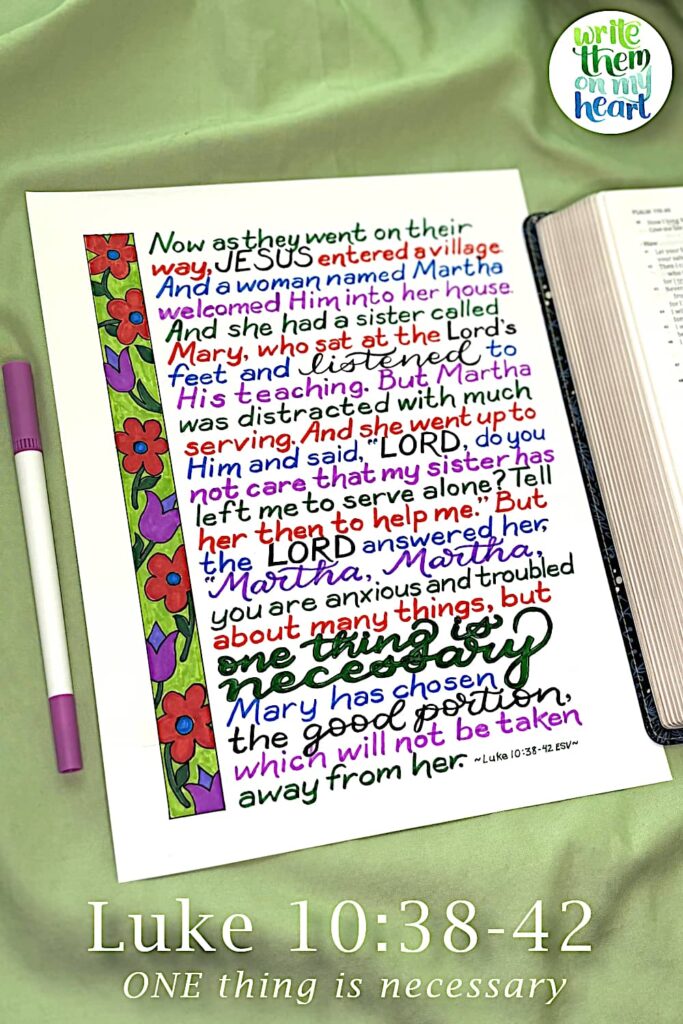 write
them
on my
heart
Now as they went on their
way, JESUS entered a village
And a woman named Martha
welcomed Him into her house.
And she had a sister called
Mary, who sat at the Lord's
feet and listened to
His teaching. But Martha
was distracted with much
serving. And she went up to
Him and said, "LORD, do you
not care that my sister has
left me to serve alone? Tell
her then to help me." But
the LORD answered her,
"Martha, Martha,
you are anxious and troubled
about many things, but
one thing is
necessary
Mary has chosen
the good portion,
which will not be taken
away from her. ~Luke 10:38-42 ESV~
Luke 10:38-42
ONE thing is necessary